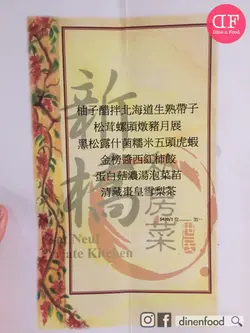 DF
Dine n Food
柚子醋拌北海道生熟帶子
松茸螺頭燉豬月展
黑松露什菌糯米五頭虎蝦
金榜醬西紅柿餃
蛋白菇濃湯泡菜苗
清藏棗皇雪梨茶
新橋
私房菜
Pont Neuf
Private Kitchen
dinenfood